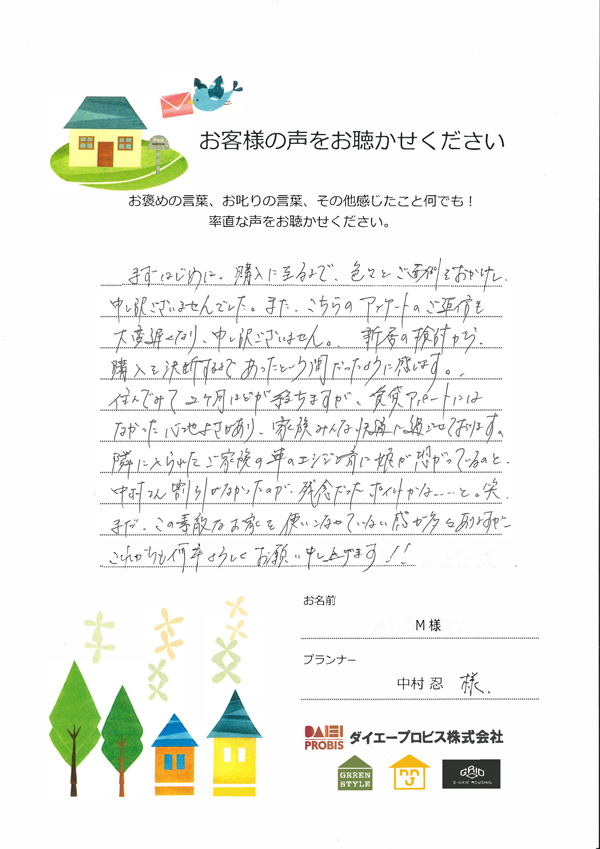 お客様の声をお聴かせください
お褒めの言葉、お叱りの言葉、その他感じたこと何でも！
率直な声をお聴かせください。
まずはじめに、購入に至るまで、色々とご面倒をおかけし、
申し訳ございませんでした。また、こちらのアンケートのご返信も
大変遅くなり、申し訳ございません。新居の検討から、
購入を決断するまであったという間だったように感じます。
住んでみて2ヶ月ほどが経ちますが、賃貸アパートには
なかった心地よさがあり、家族みんな快適に過ごせております。
隣に入られたご家族の車のエンジン音に娘が恐がっているのと、
中村さん割引がなかったのが、残念だったポイントかな……と。笑
まだ、この素敵なお家を使いこなせていない感が多々ありますが、
これからも何卒よろしくお願い申し上げます!!
お名前
M様
プランナー
中村 忍 様
DAIEI PROBIS ダイエープロビス株式会社
GREEN STYLE
GRID
D-GRIP HOUSING